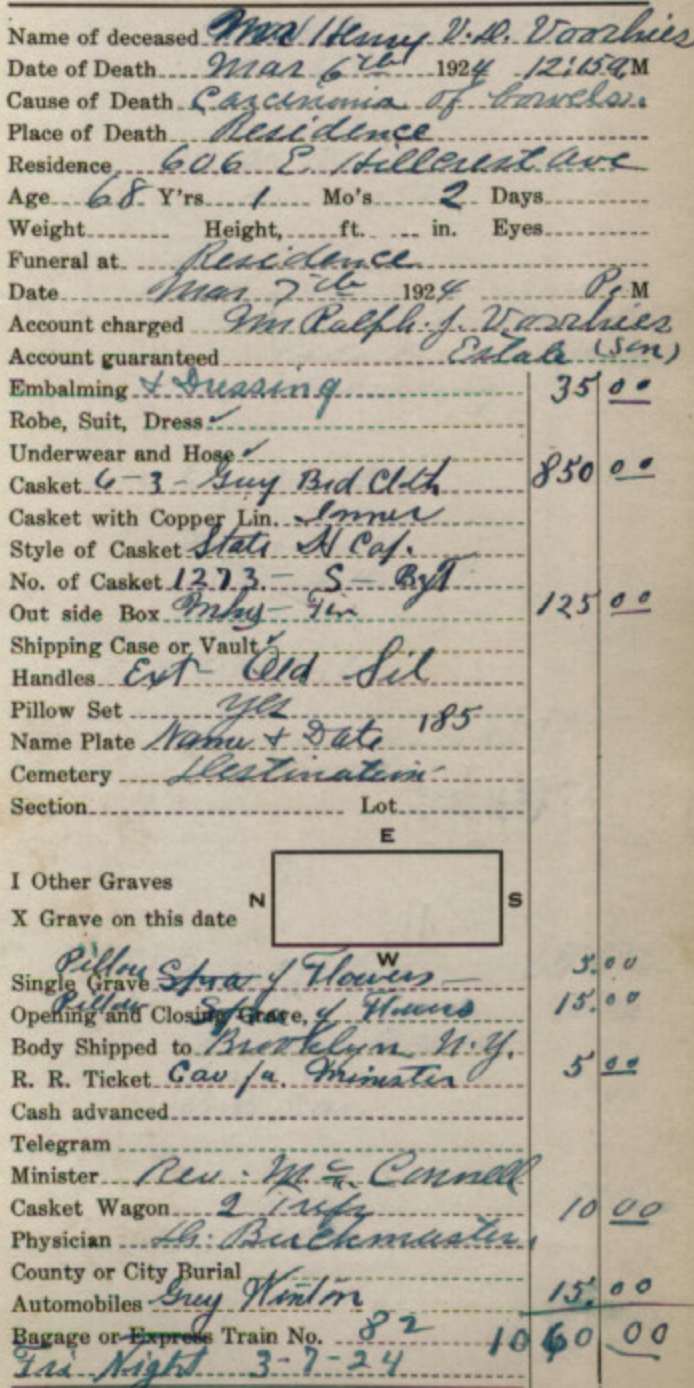 Name of deceased Mrs Henry V.D. Voorhies
Date of Death Mar 6th 1924 12:15 a M
Cause of Death Carcinomia of bowels.
Place of Death Residence
Residence 606 E. Hillcrest Ave
Age 68 Y'rs 1 Mo's 2 Days
Weight Height, ft. in. Eyes
Funeral at Residence
Date Mar 7th 1924 P. M
Account charged Mr Ralph. J. Voorhies
Account guaranteed Estate (Son)
Embalming & Dressing 35 00
Robe, Suit, Dress ✓
Underwear and Hose ✓
Casket 6-3- Grey Brd Cloth 850 00
Casket with Copper Lin. Inner
Style of Casket State H Cap.
No. of Casket 1273- S-
Out side Box Mhy- Tin 125 00
Shipping Case or Vault ✓
Handles Ext- Old Sil
Pillow Set yes
Name Plate Name & Date 185
Cemetery Destination
Section Lot
E
I Other Graves
N S
X Grave on this date
W
Pillow
Single Grave Spray of Flowers 5.00
Pillow
Opening and Closing Grave, Spray of Flowers 15.00
Body Shipped to Brooklyn N.Y.
R. R. Ticket Car for Minister 5 00
Cash advanced
Telegram
Minister Rev. McConnell
Casket Wagon 2 Trips 10 00
Physician Dr. Buckmaster
County or City Burial
Automobiles Grey Winton 15.00
Bagage or Express Train No. 82 1060 00
Fri Night 3-7-24